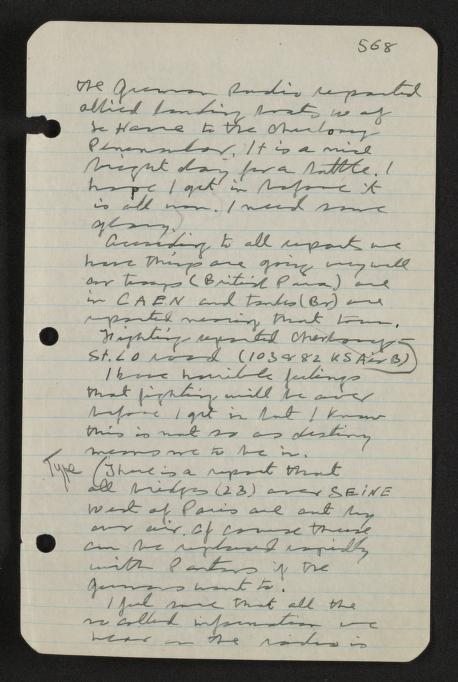 568
the German radio reported
allied landing boats w of
Le Havre to the Cherbourg
Peninsular. It is a nice
bright day for a battle. I
hope I get in before it
is all won. I need some
glory.
According to all reports we
have things are going very well
our troops (British Para) are
in CAEN and tanks (Br) are
reported nearing that town.
Fighting reported Cherbourg-
St. LO road (103 & 82 US Air B)
I have horrible feelings
that fighting will be over
before I get in but I know
this is not so as destiny
means me to be in.
Type (There is a report that
all bridges (23) over SEINE
West of Paris are cut by
our air. Of course these
can be replaced rapidly
with Pontons if the
germans want to.
I feel sure that all the
so called information we
hear on the radio is